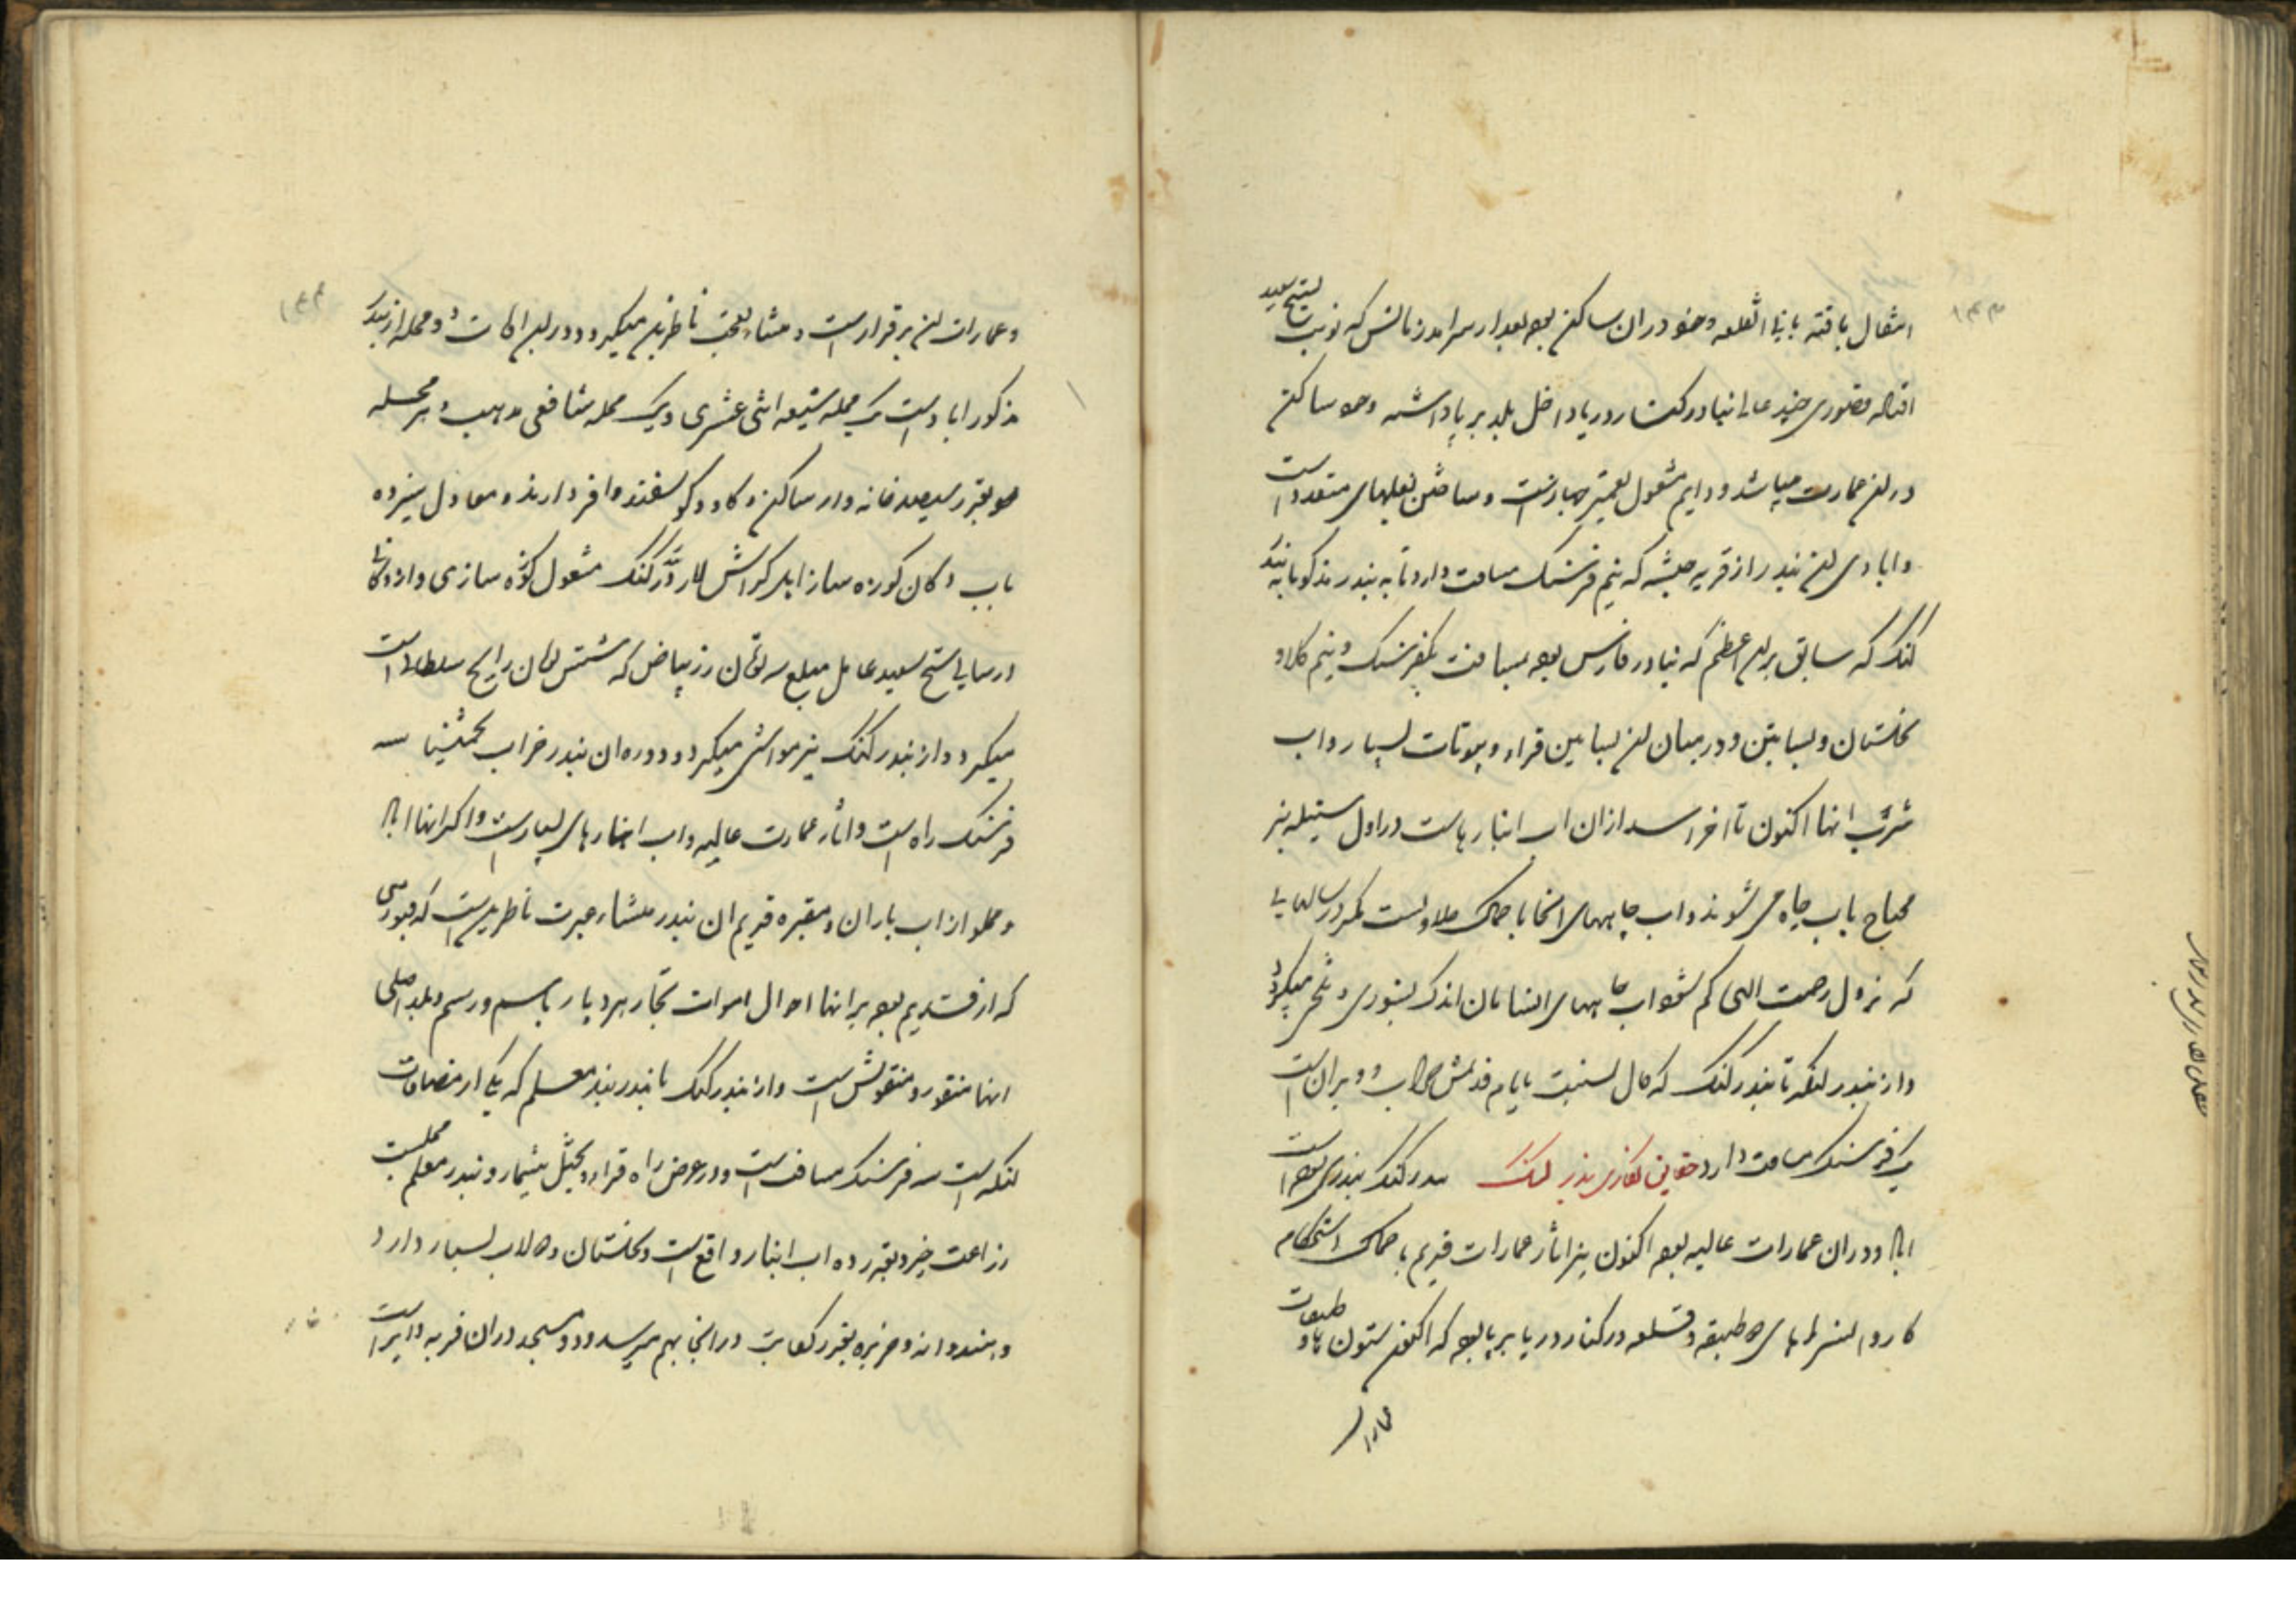 ۱۴۳
انتقال یافته بانی انقلعه و خود در ان ساکن بوده بعد از سرامد زمانش که نوبت بشیخ سعید
افتاده قصوری چند عالی بنیاد در کنار دریا داخل بلد بر پا داشته و خود ساکن
در این عمارت میباشد و دایم مشغول تعمیر جهازاتست و صاحب بغلهای متعدد است
و ابادی این بندر از قریه که نیم فرسنگ مسافت دارد تا به بندر مذکور تا به بندر
کنگ که سابق براین اعظم بنادر فارس بوده بمسافت یکفرسنگ و نیم کلاو
نخلستان و بساتین و در میان این بساتین قراء و بیوتات بسیار و اب
شرب انها اکنون تا اخر اسد از ان اب انبارهاست در اول سنبله نیز
محتاج باب چاه می شوند و اب چاههای انجا با کمال حلاوتست مگر در سالهایی
که نزول رحمت الهی کم شود اب چاههای ایشان اندک بشوری و تلخی میگردد
و از بندر لنگه تا بندر کنگ که حال بنسبت بایام قدیمش خراب و ویران است
یک فرسنگ مسافت دارد بندر کنگ بندر کنگ بندری بوده است
اباد و در ان عمارات عالیه بوده اکنون نیز اثار عمارات قدیم با کمال استحکام
کاروانسراهای طبقه و قلعه در کنار دریا بر پا بوده که اکنون ستون ها و طبقات
عمارا
۱۴۴
و عمارات این برقرار است و منشاء تعجب ناظرین میگردد و در این اکات دو محله از بندر
مذکور اباد است یک محله شیعه اثنی عشری و یک محله شافعی مذهب و هر محله
بقدر سیصد خانه وار ساکن و گاو و گوسفند وافر دارند و معادل سیزده
باب دکان کوزه ساز اهل کراش لار در کنگ مشغول کوزه سازی و از دکانها
در سالی شیخ سعید عامل مبلغ سه تومان زر بیاض که شش تومان رایج سلطانی است
میگیرد و از بندر کنگ نیز مواشی میگیرد و دوره ان بندر خراب تخمینا سه
فرسنگ راه است و اثار عمارت عالیه و اب انبارهای بسیار است و اکثر انها اباد
و مملو از اب باران و مقبره قدیم ان بندر منشاء حیرت ناظرین است که قبوری
که از قدیم بوده بر انها احوال اموات تجار هر دیار باسم و رسم و بلد اصلی
انها منقور و منقوش است و از بندر کنگ تا بندر بندر معلم که یکی از مضافات
لنگه است سه فرسنگ مسافت است و در عرض راه قراء و نخیل بیشمار و بندر معلم محلیست
زراعت خیز و بقدر ده اب انبار واقع است و نخلستان و دولاب بسیار دارد
و هندوانه و خربزه بقدر کفایت در انجا بهم میرسد و دو مسجد در ان قریه دایر است